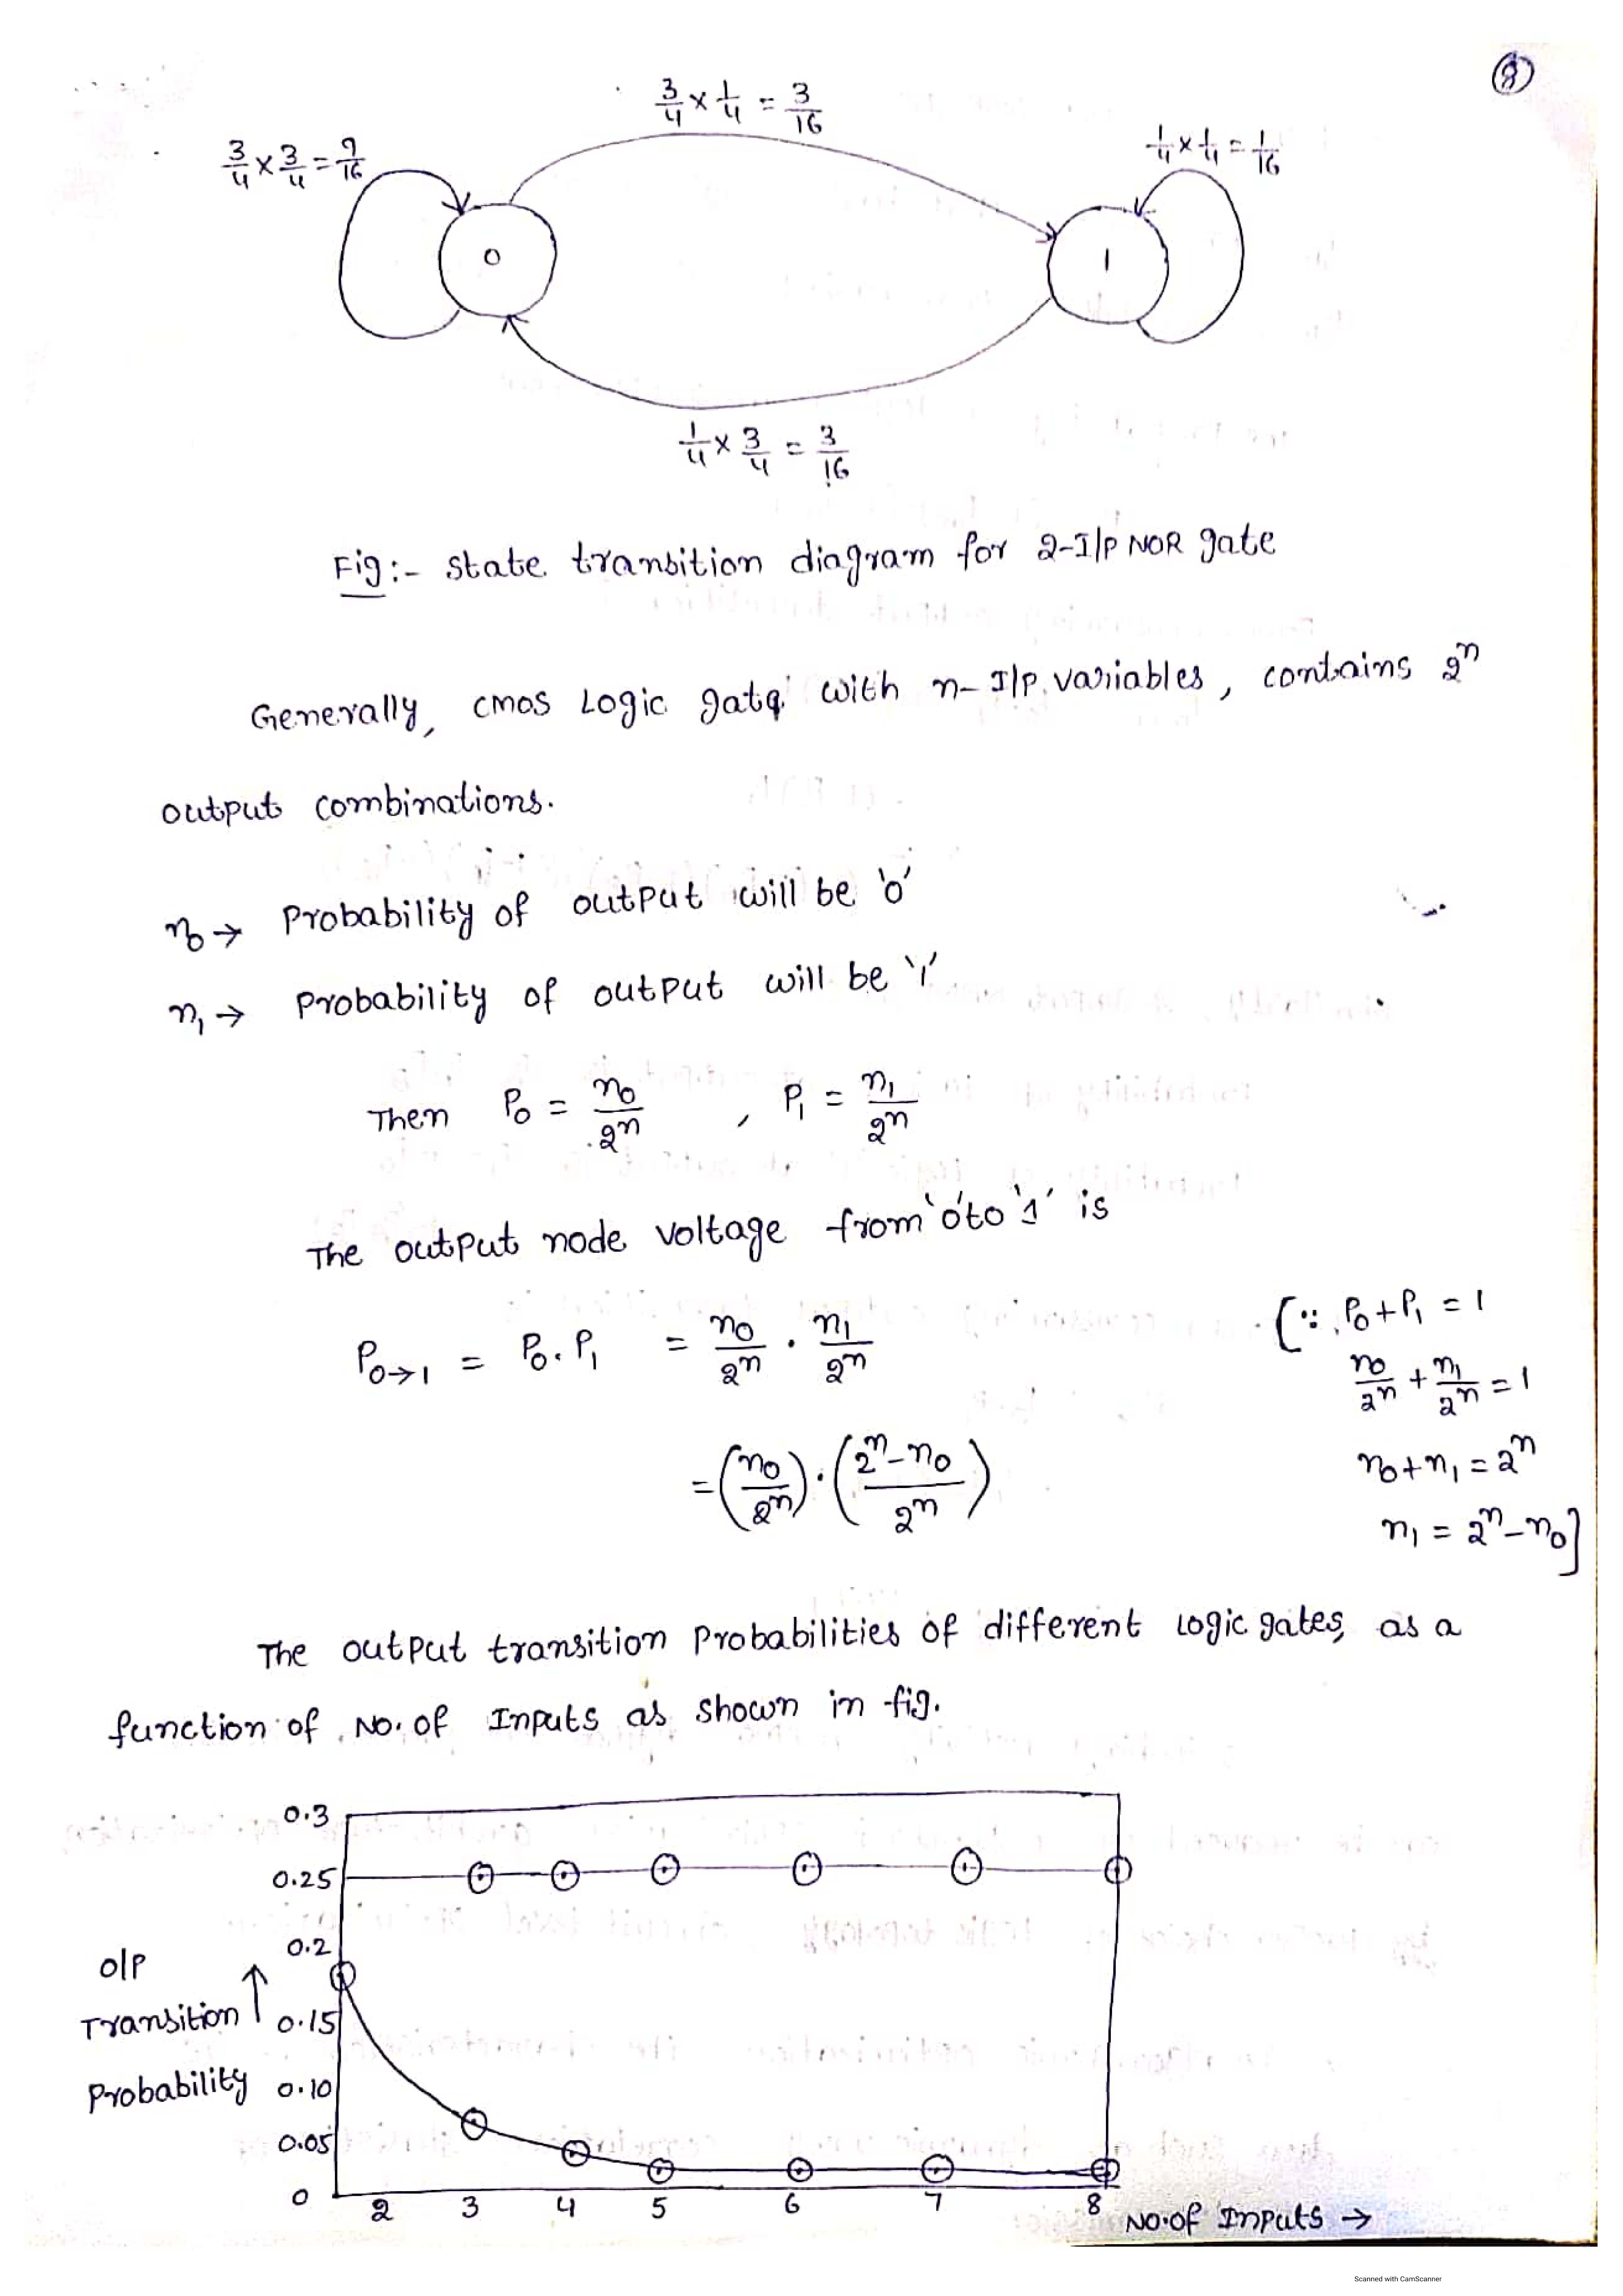 8
3/4 × 1/4 = 3/16
3/4 × 3/4 = 9/16
1/4 × 1/4 = 1/16
0
1
1/4 × 3/4 = 3/16
Fig:- state transition diagram for 2-I/P NOR gate
Generally, CMOS Logic gate with n-I/P variables, contains 2^n
output combinations.
n₀ → Probability of output will be '0'
n₁ → Probability of output will be '1'
Then P₀ = n₀/2^n , P₁ = n₁/2^n
The output node voltage from '0' to '1' is
P₀→₁ = P₀.P₁ = n₀/2^n . n₁/2^n
[∵ P₀+P₁ = 1
n₀/2^n + n₁/2^n = 1
= (n₀/2^n).(2^n-n₀/2^n)
n₀+n₁ = 2^n
n₁ = 2^n-n₀]
The output transition Probabilities of different logic gates, as a
function of No. of Inputs as shown in fig.
0.3
0.25
0.2
O/P
Transition ↑
0.15
Probability
0.10
0.05
0
2 3 4 5 6 7 8
No. of Inputs →
Scanned with CamScanner